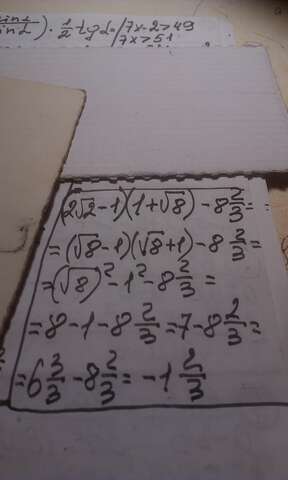 ) · 1/2 tg α = 7x-2>49
7x>51
(2√2-1)(1+√8)-8 2/3=
=(√8-1)(√8+1)-8 2/3=
=(√8)²-1²-8 2/3=
=8-1-8 2/3=7-8 2/3=
=6 3/3-8 2/3=-1 2/3